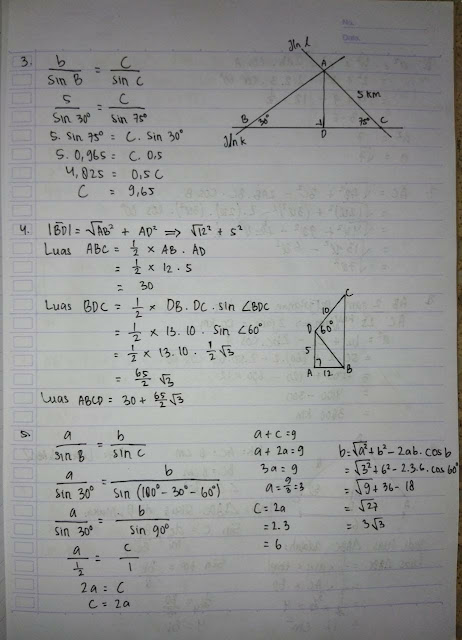 No.
Date.
3. b/sin B = c/sin C
5/sin 30° = c/sin 75°
5. sin 75° = c. sin 30°
5. 0,965 = c. 0,5
4,825 = 0,5 c
c = 9,65
Jln l
A
5 km
B 30° 75° C
D
Jln k
4. |BD| = √AB² + AD² ⟹ √12² + 5²
Luas ABC = 1/2 × AB . AD
= 1/2 × 12 . 5
= 30
Luas BDC = 1/2 × DB. DC. sin ∠BDC
= 1/2 × 13. 10. sin ∠60°
= 1/2 × 13. 10. 1/2 √3
= 65/2 √3
Luas ABCD = 30 + 65/2 √3
C
10
D 60°
5
A 12 B
5. a/sin B = b/sin C
a/sin 30° = b/sin (180° - 30° - 60°)
a/sin 30° = b/sin 90°
a/1/2 = c/1
2a = c
c = 2a
a + c = 9
a + 2a = 9
3a = 9
a = 9/3 = 3
c = 2a
= 2.3
= 6
b = √a² + b² - 2ab. cos b
= √3² + 6² - 2.3.6. cos 60°
= √9 + 36 - 18
= √27
= 3√3